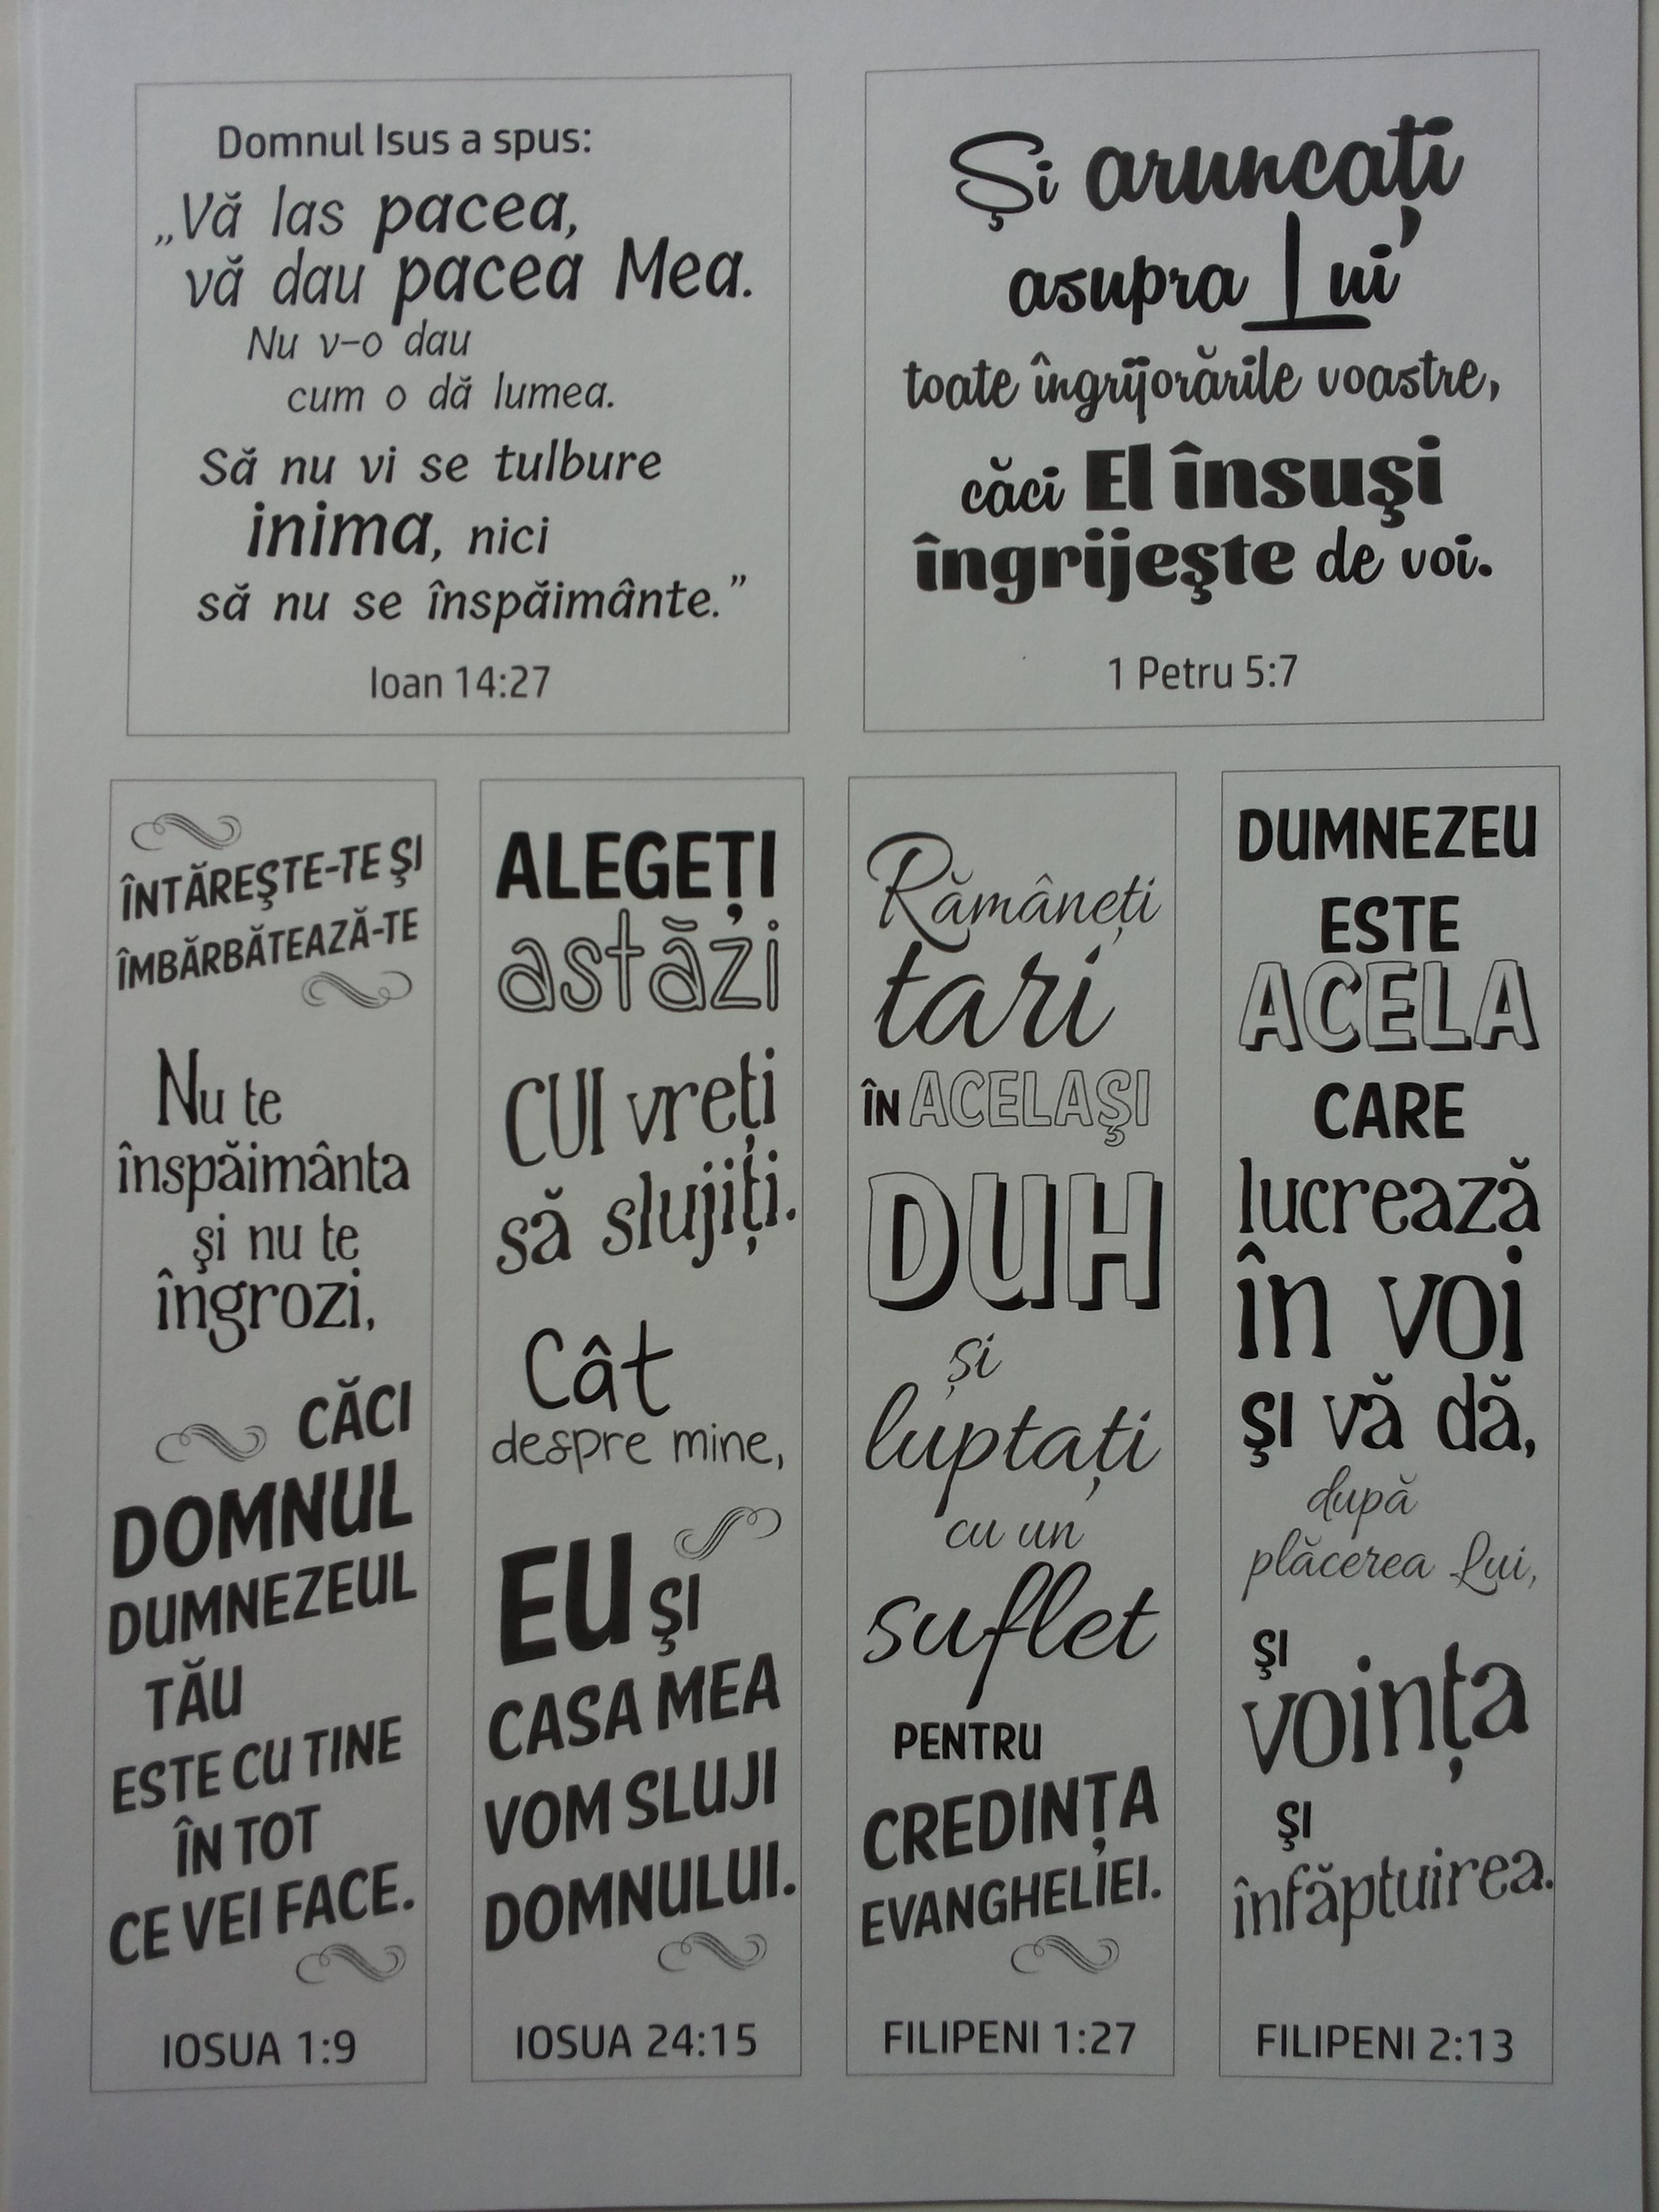 Domnul Isus a spus:
„Vă las pacea,
vă dau pacea Mea.
Nu v-o dau
cum o dă lumea.
Să nu vi se tulbure
inima, nici
să nu se înspăimânte.”
Ioan 14:27
Şi aruncați
asupra Lui
toate îngrijorările voastre,
căci El însuşi
îngrijeşte de voi.
1 Petru 5:7
ÎNTĂREŞTE-TE ŞI
ÎMBĂRBĂTEAZĂ-TE
Nu te
înspăimânta
şi nu te
îngrozi,
CĂCI
DOMNUL
DUMNEZEUL
TĂU
ESTE CU TINE
ÎN TOT
CE VEI FACE.
IOSUA 1:9
ALEGEȚI
astăzi
CUI vreți
să slujiți.
Cât
despre mine,
EU ŞI
CASA MEA
VOM SLUJI
DOMNULUI.
IOSUA 24:15
Rămâneți
tari
ÎN ACELAŞI
DUH
și
luptați
cu un
suflet
PENTRU
CREDINȚA
EVANGHELIEI.
FILIPENI 1:27
DUMNEZEU
ESTE
ACELA
CARE
lucrează
în voi
şi vă dă,
după
plăcerea Lui,
ŞI
voința
ŞI
înfăptuirea.
FILIPENI 2:13